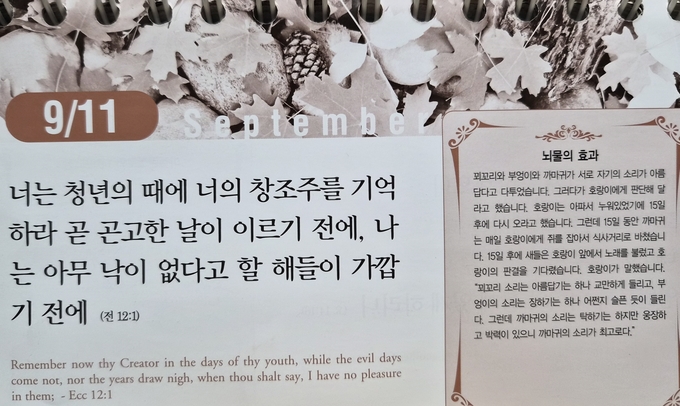 9/11
September
너는 청년의 때에 너의 창조주를 기억
하라 곧 곤고한 날이 이르기 전에, 나
는 아무 낙이 없다고 할 해들이 가깝
기 전에 (전 12:1)
Remember now thy Creator in the days of thy youth, while the evil days
come not, nor the years draw nigh, when thou shalt say, I have no pleasure
in them; - Ecc 12:1
뇌물의 효과
꾀꼬리와 부엉이와 까마귀가 서로 자기의 소리가 아름
답다고 다투었습니다. 그러다가 호랑이에게 판단해 달
라고 했습니다. 호랑이는 아파서 누워있었기에 15일
후에 다시 오라고 했습니다. 그런데 15일 동안 까마귀
는 매일 호랑이에게 쥐를 잡아서 식사거리로 바쳤습니
다. 15일 후에 새들은 호랑이 앞에서 노래를 불렀고 호
랑이의 판결을 기다렸습니다. 호랑이가 말했습니다.
"꾀꼬리 소리는 아름답기는 하나 교만하게 들리고, 부
엉이의 소리는 장하기는 하나 어쩐지 슬픈 듯이 들린
다. 그런데 까마귀의 소리는 탁하기는 하지만 웅장하
고 박력이 있으니 까마귀의 소리가 최고로다."